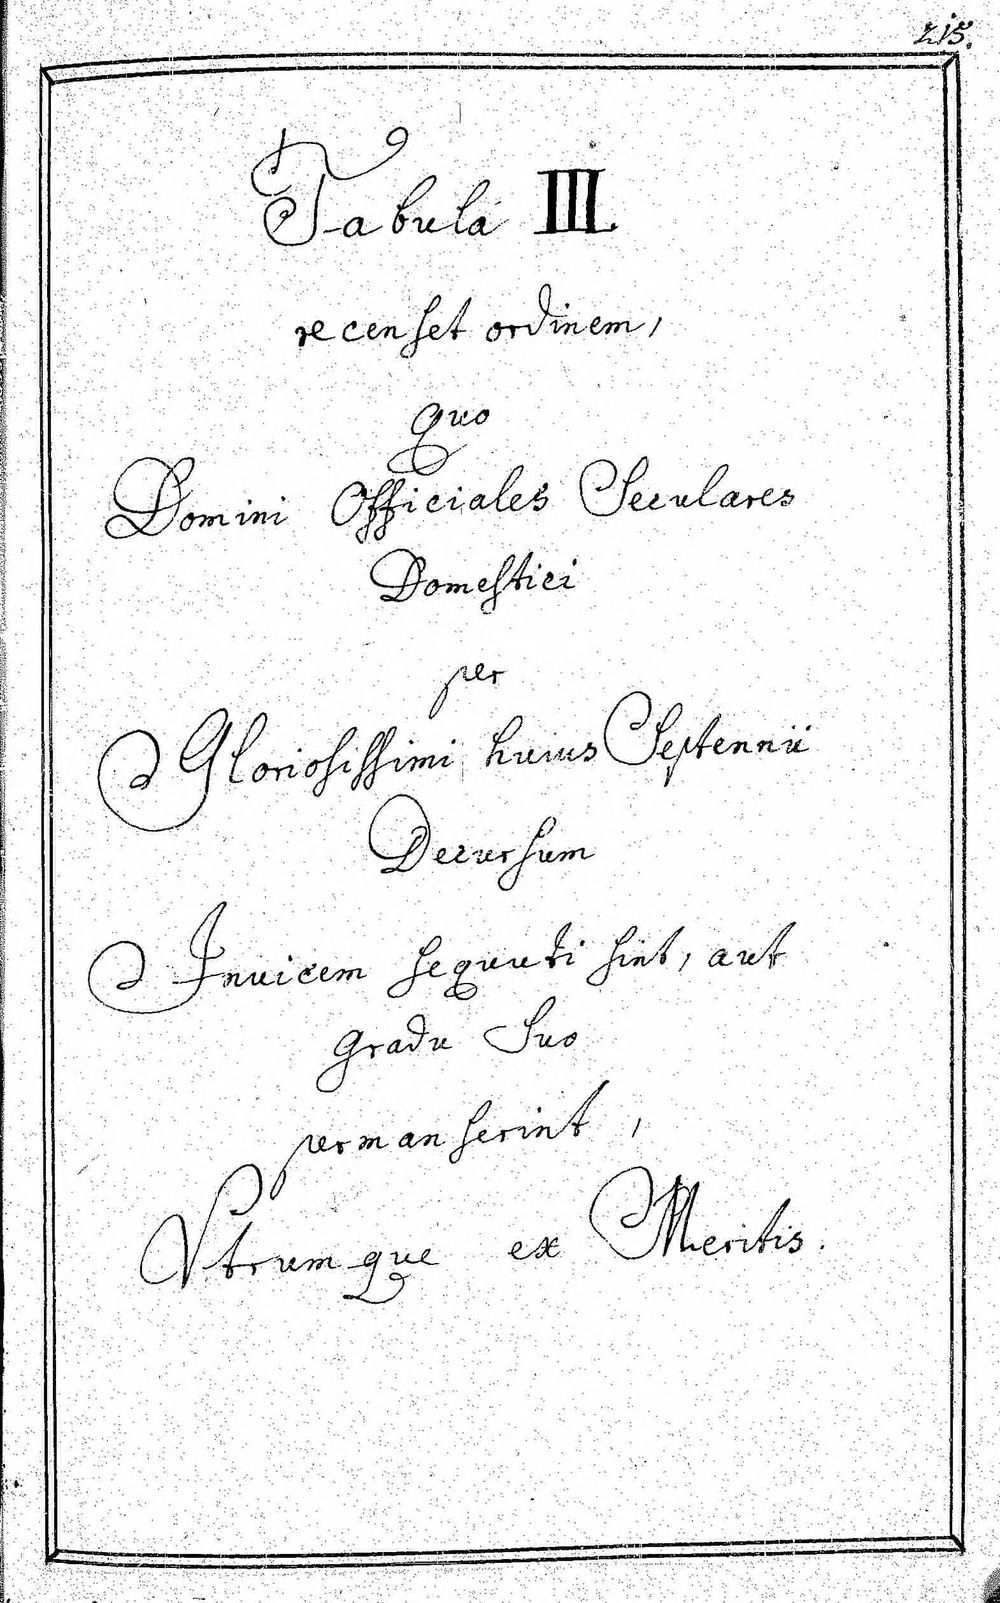 215.
Tabula III.
recenset ordinem,
quo
Domini Officiales Seculares
Domestici
per
Gloriosissimi huius Septennii
Decursum
Invicem sequuti sint, aut
gradu Suo
permanserint,
Vtrumque ex Meritis.